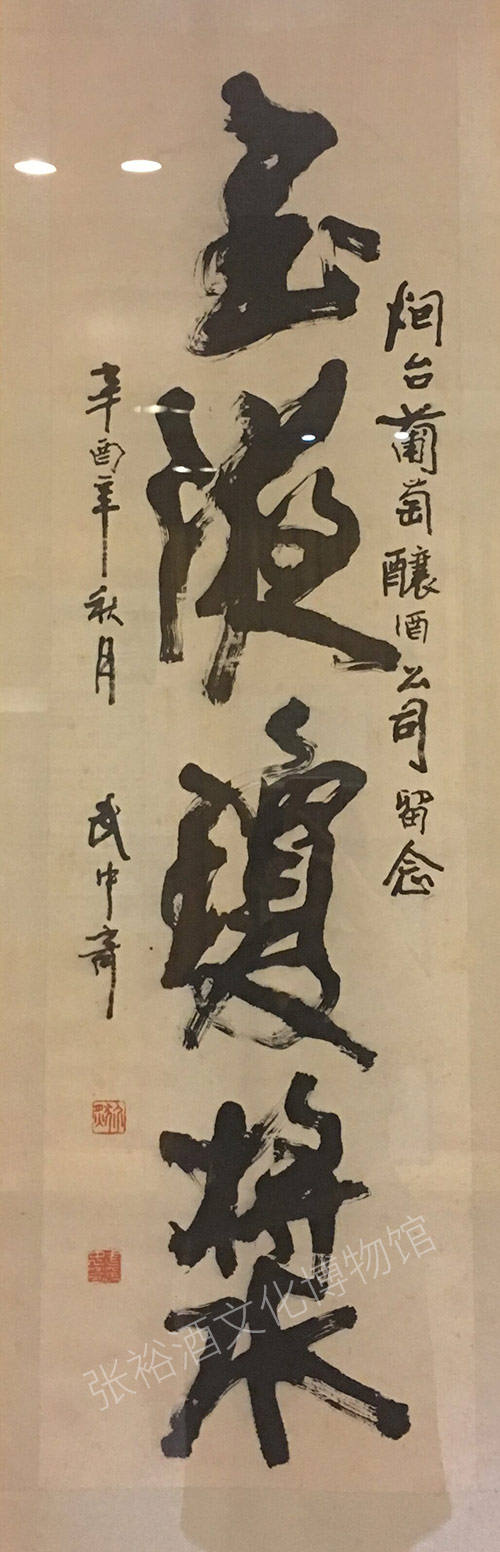 烟台葡萄釀酒公司留念
玉液瓊漿
辛酉年秋月 武中奇
张裕酒文化博物馆